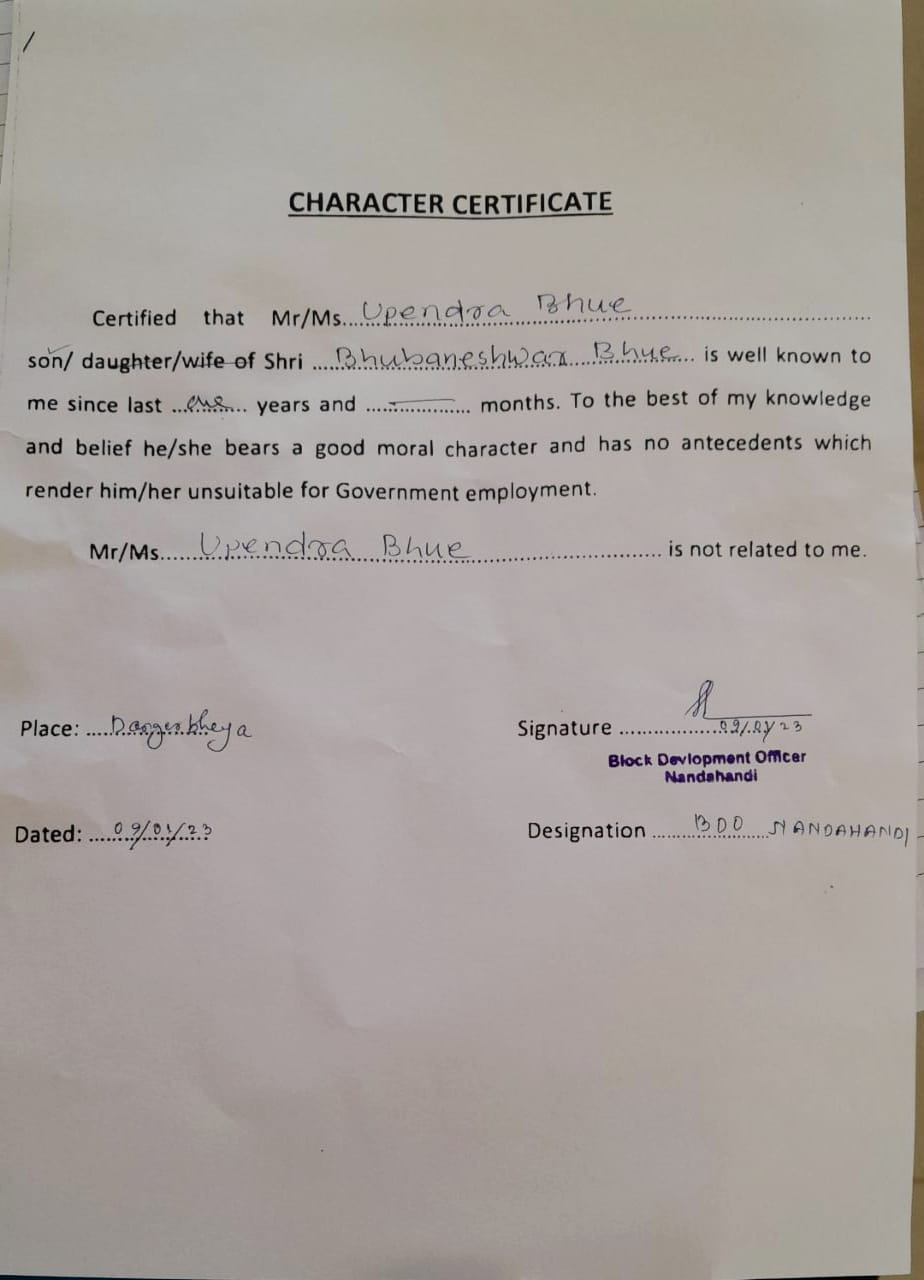 CHARACTER CERTIFICATE
Certified that Mr/Ms. Upendra Bhue
son/ daughter/wife of Shri Bhubaneshwar Bhue is well known to
me since last one years and — months. To the best of my knowledge
and belief he/she bears a good moral character and has no antecedents which
render him/her unsuitable for Government employment.
Mr/Ms. Upendra Bhue is not related to me.
Place:
Signature 09/01/23
Block Devlopment Officer
Nandahandi
Dated: 09/01/23
Designation BDO NANDAHANDI